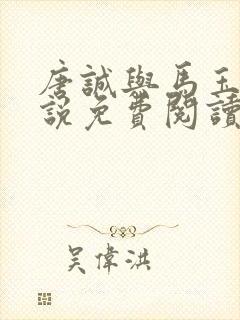 唐誠與馬玉
說免費閱讀
吳偉洪